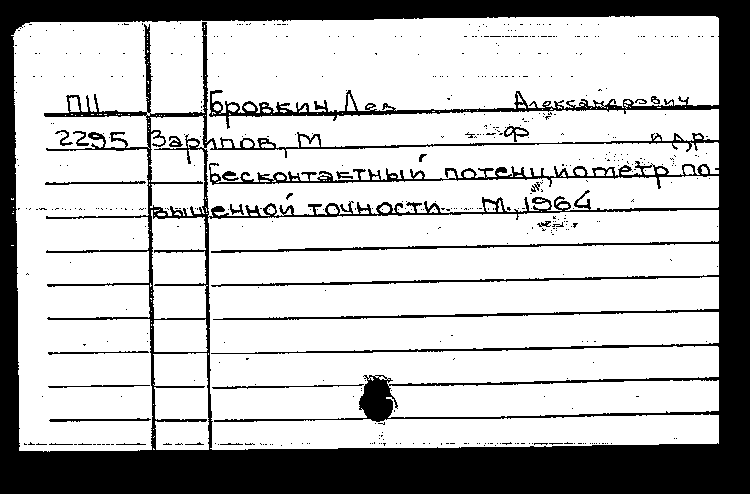 ПШ Бровкин, Лев Александрович
2295 Зарипов, М Ф и др.
Бесконтактный потенциометр по-
вышенной точности М., 1964.